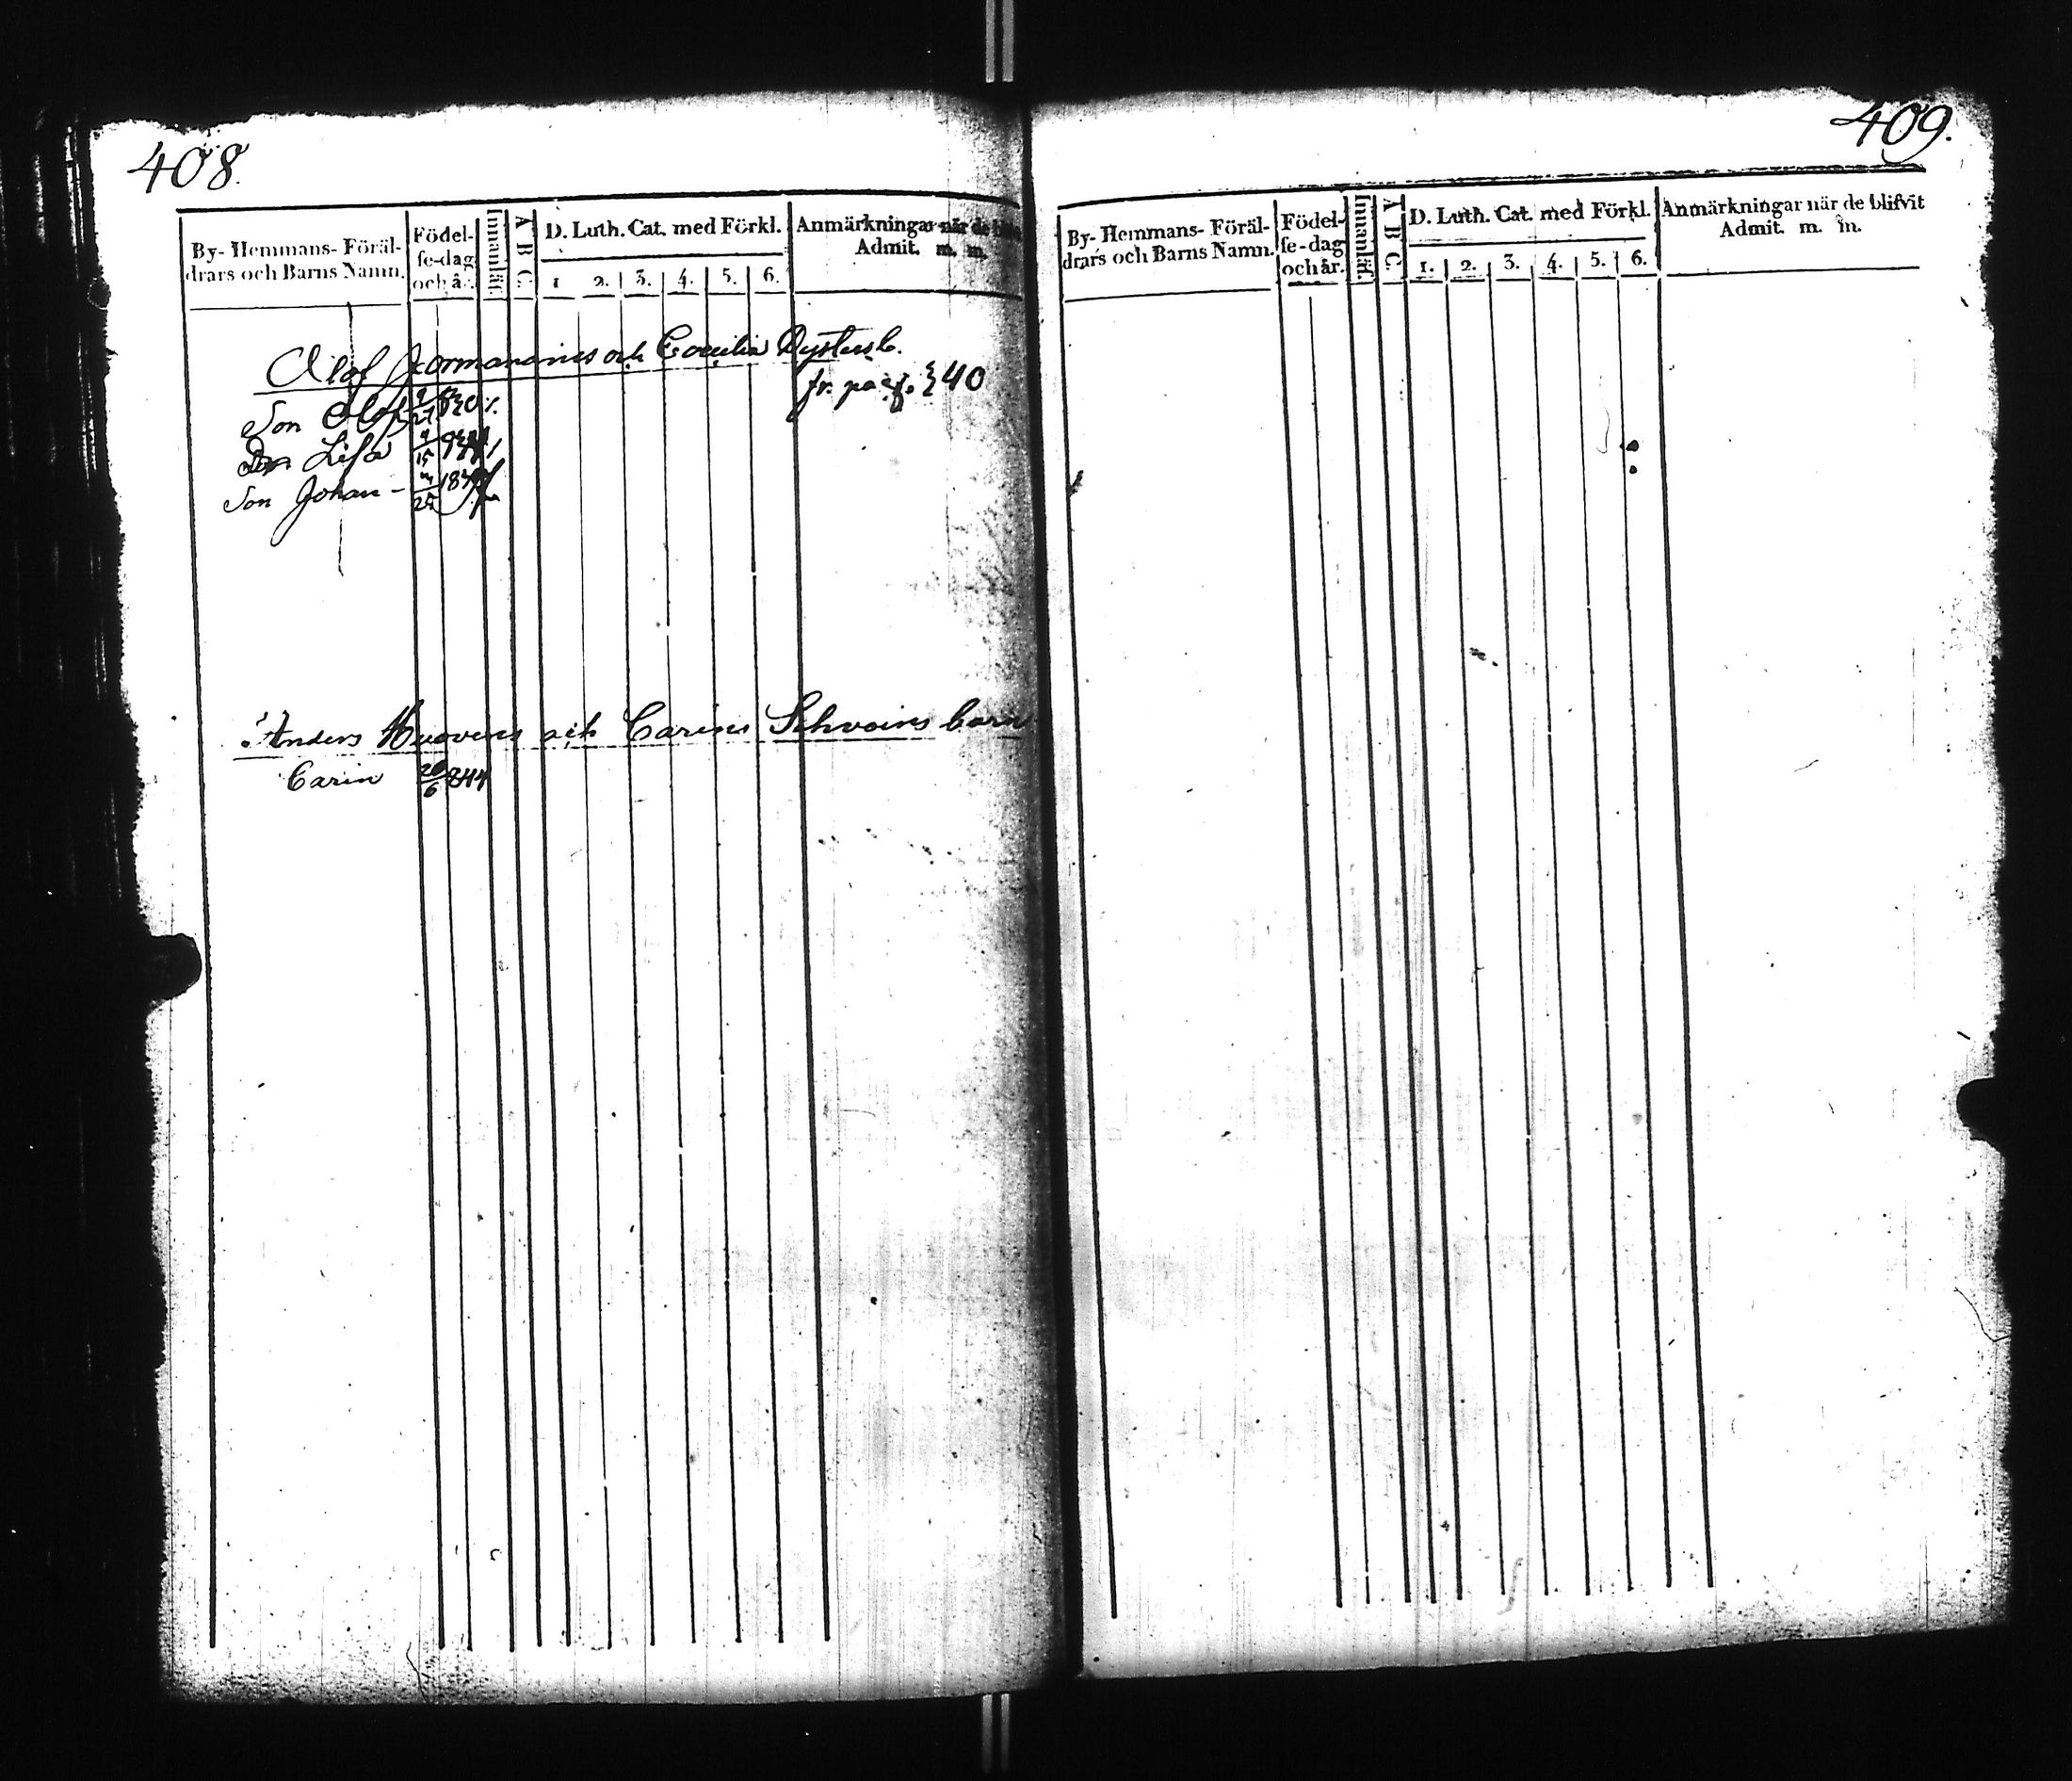 408.
By- Hemmans- Föräl-
drars och Barns Namn.
Födel-
se-dag
och år.
Innanläs.
A B C.
D. Luth. Cat. med Förkl.
1 2. 3. 4. 5. 6.
Anmärkningar när de
Admit. m. m.
Olof och Dysters b.
fr. pag. 40
Son Olof
Lisa
Son Johan -
Anders Huovins och Carins barn
Carin 844
409.
By- Hemmans- Föräl-
drars och Barns Namn.
Födel-
se-dag
och år.
Innanläs.
A B C.
D. Luth. Cat. med Förkl.
1. 2. 3. 4. 5. 6.
Anmärkningar när de blifvit
Admit. m. m.